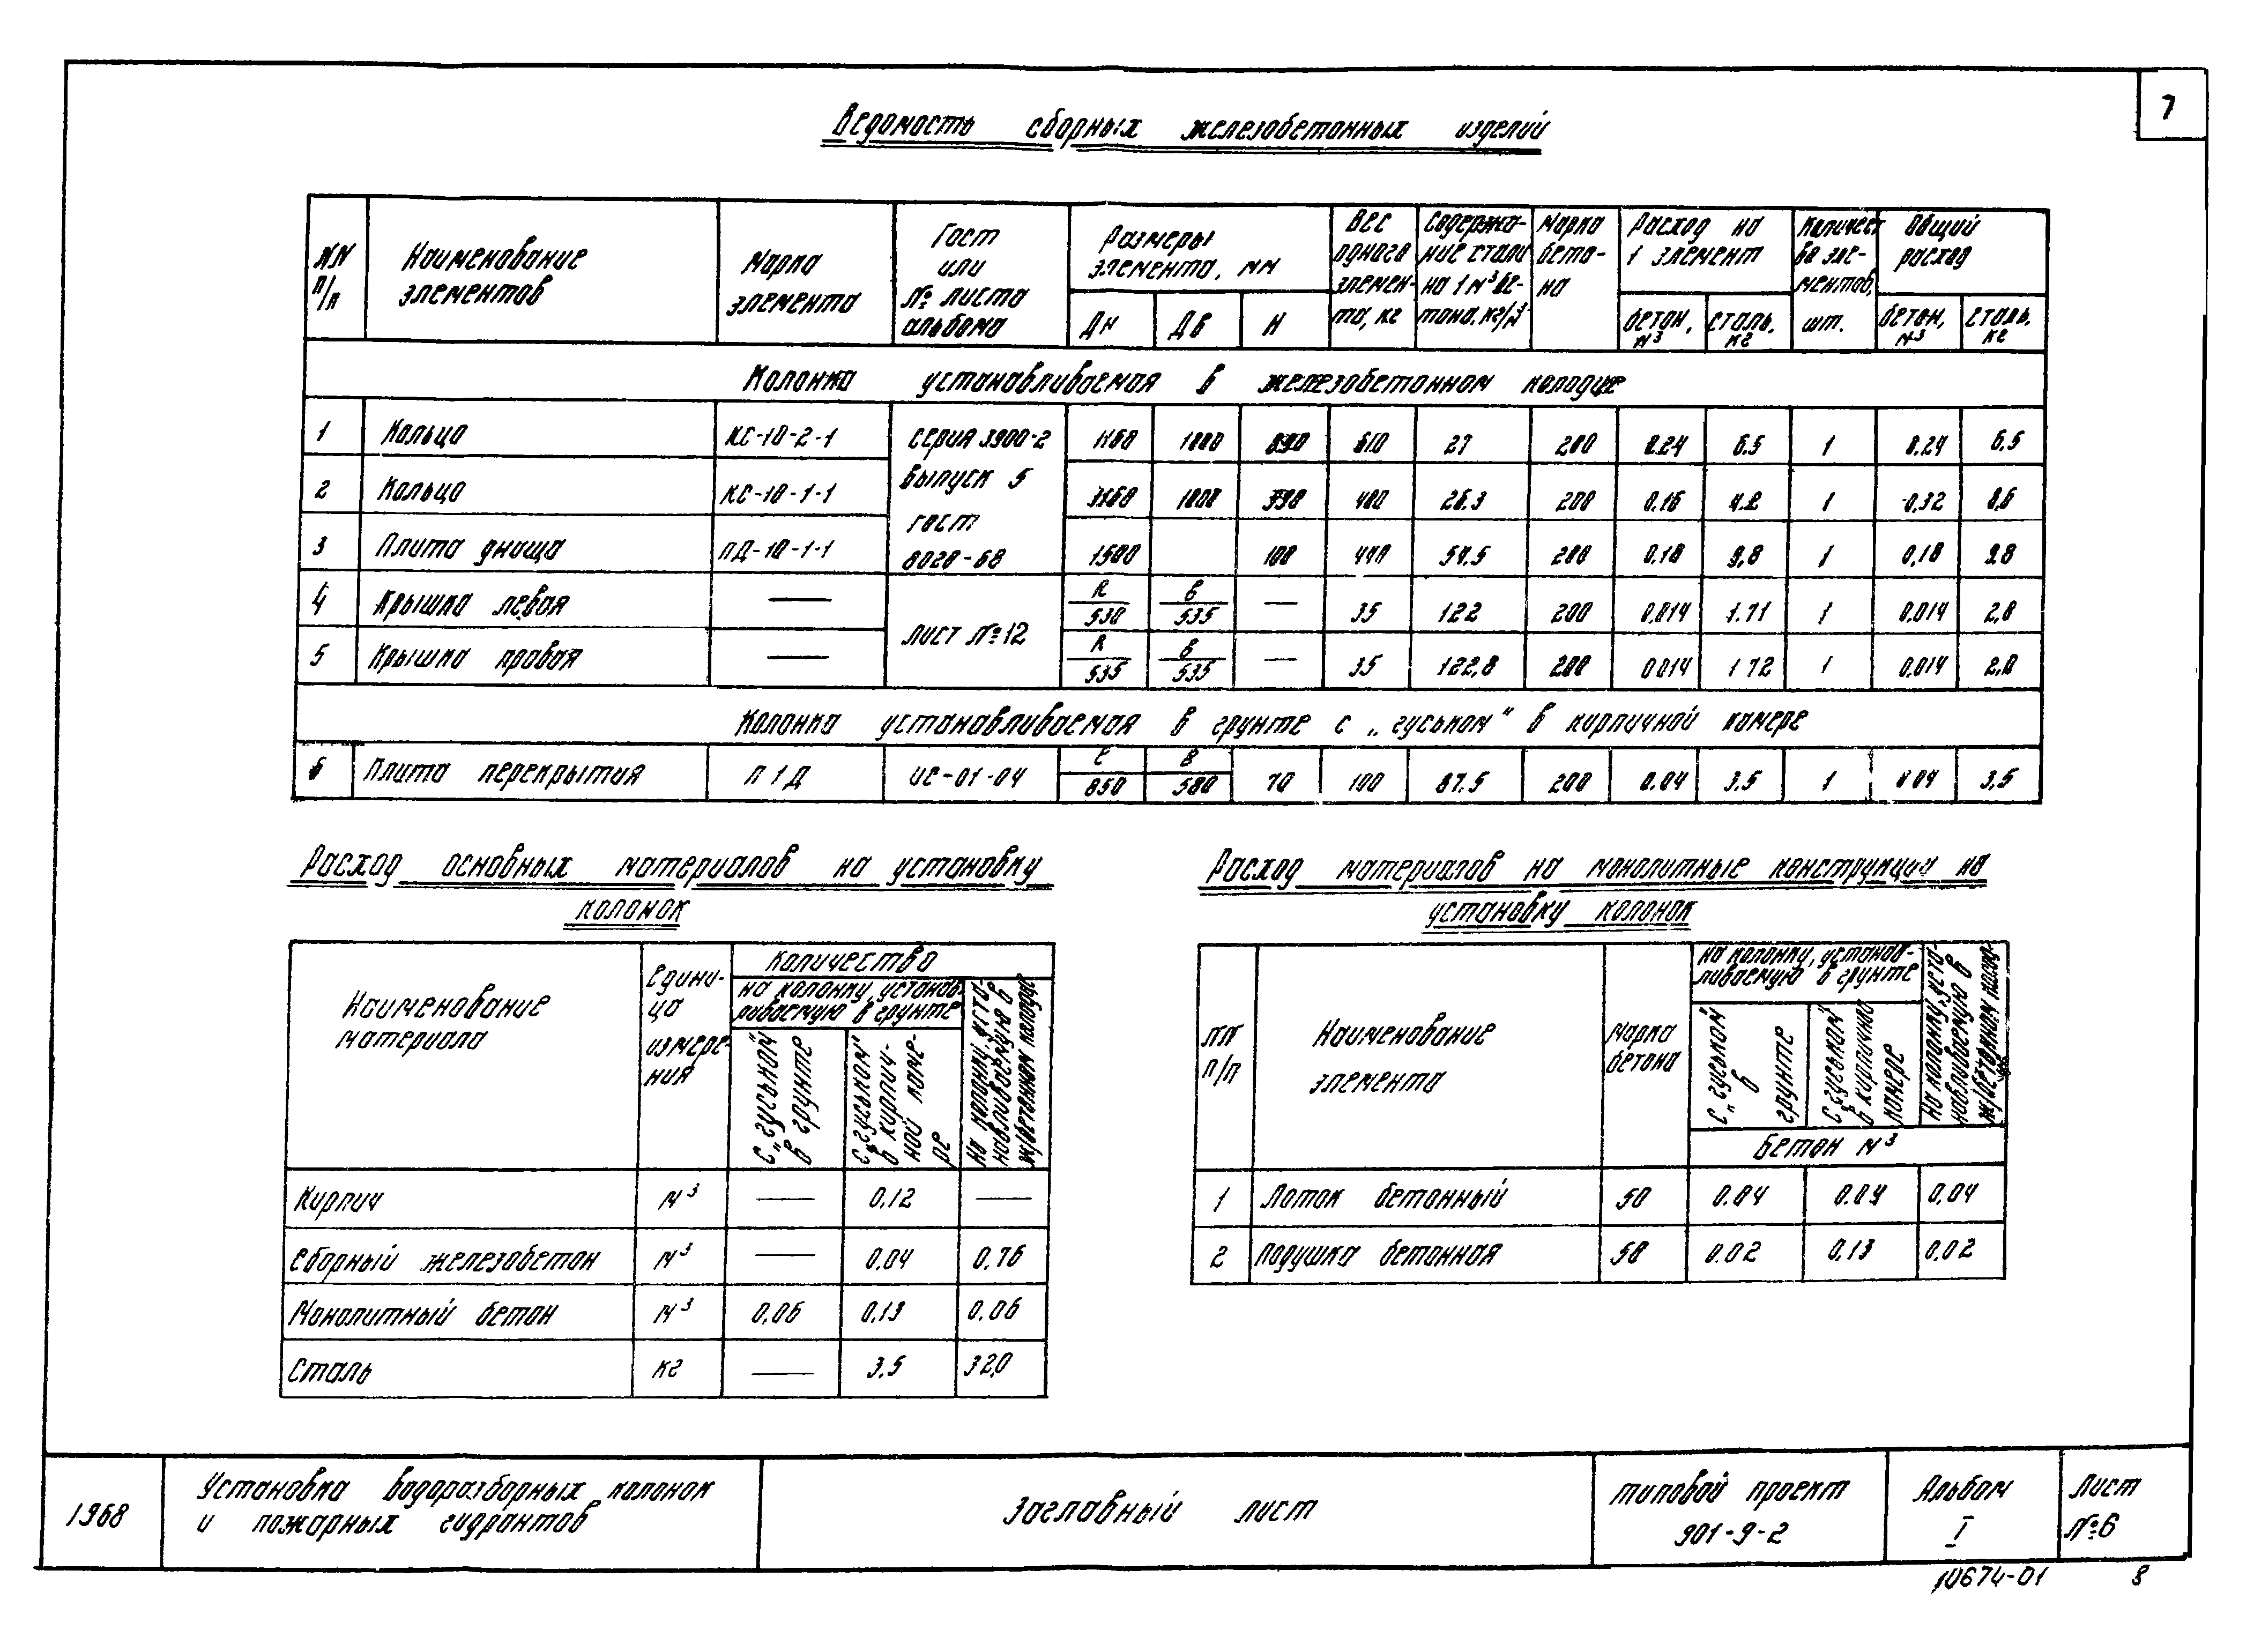 7
Ведомость сборных железобетонных изделий
NN п/п | Наименование элементов | Марка элемента | Гост или № листа альбома | Размеры элемента, мм | Вес одного элемен-та, кг | Содержа-ние стали на 1 м³ бе-тона, кг/м³ | Марка бето-на | Расход на 1 элемент | Количест-во эле-ментов, шт. | Общий расход
Дн | Дв | Н | бетон, м³ | сталь, кг | бетон, м³ | сталь, кг
Колонка устанавливаемая в железобетонном колодце
1 | Кольцо | КС-10-2-1 | серия 3900-2 | 1160 | 1000 | 890 | 610 | 27 | 200 | 0.24 | 6.5 | 1 | 0.24 | 6,5
2 | Кольцо | КС-10-1-1 | выпуск 5 | 1160 | 1000 | 590 | 400 | 26.3 | 200 | 0.16 | 4.2 | 1 | 0,32 | 8,6
гост
3 | Плита днища | ПД-10-1-1 | 8020-68 | 1500 | 100 | 440 | 54.5 | 200 | 0.18 | 9,8 | 1 | 0,18 | 9.8
4 | Крышка левая | — | R/530 | б/535 | — | 35 | 122 | 200 | 0.014 | 1.71 | 1 | 0,014 | 2,0
лист №12
5 | Крышка правая | — | R/535 | б/535 | — | 35 | 122,8 | 200 | 0.014 | 1.72 | 1 | 0,014 | 2,0
Колонка устанавливаемая в грунте с „гуськом" в кирпичной камере
6 | Плита перекрытия | П1Д | ИС-01-04 | ℓ/850 | В/580 | 70 | 100 | 87.5 | 200 | 0.04 | 3.5 | 1 | 0.04 | 3,5
Расход основных материалов на установку
колонок
Наименование материала | Едини-ца измере-ния | Количество
на колонку, устанав-ливаемую в грунте | На колонку, уста-навливаемую в ж/бетонном колодце
с „гуськом" в грунте | с „гуськом" в кирпич-ной каме-ре
Кирпич | м³ | — | 0.12 | —
Сборный железобетон | м³ | — | 0.04 | 0.76
Монолитный бетон | м³ | 0.06 | 0.13 | 0.06
Сталь | кг | — | 3.5 | 32,0
Расход материалов на монолитные конструкции на
установку колонок
NN п/п | Наименование элемента | Марка бетона | на колонку, устанав-ливаемую в грунте | На колонку, уста-навливаемую в ж/бетонном колод-це
с „гуськом" в грунте | с „гуськом" в кирпичной камере
Бетон м³
1 | Лоток бетонный | 50 | 0.04 | 0.04 | 0,04
2 | Подушка бетонная | 50 | 0.02 | 0,13 | 0,02
1968 | Установка водоразборных колонок и пожарных гидрантов | Заглавный лист | типовой проект 901-9-2 | Альбом I | Лист №6
10674-01 8